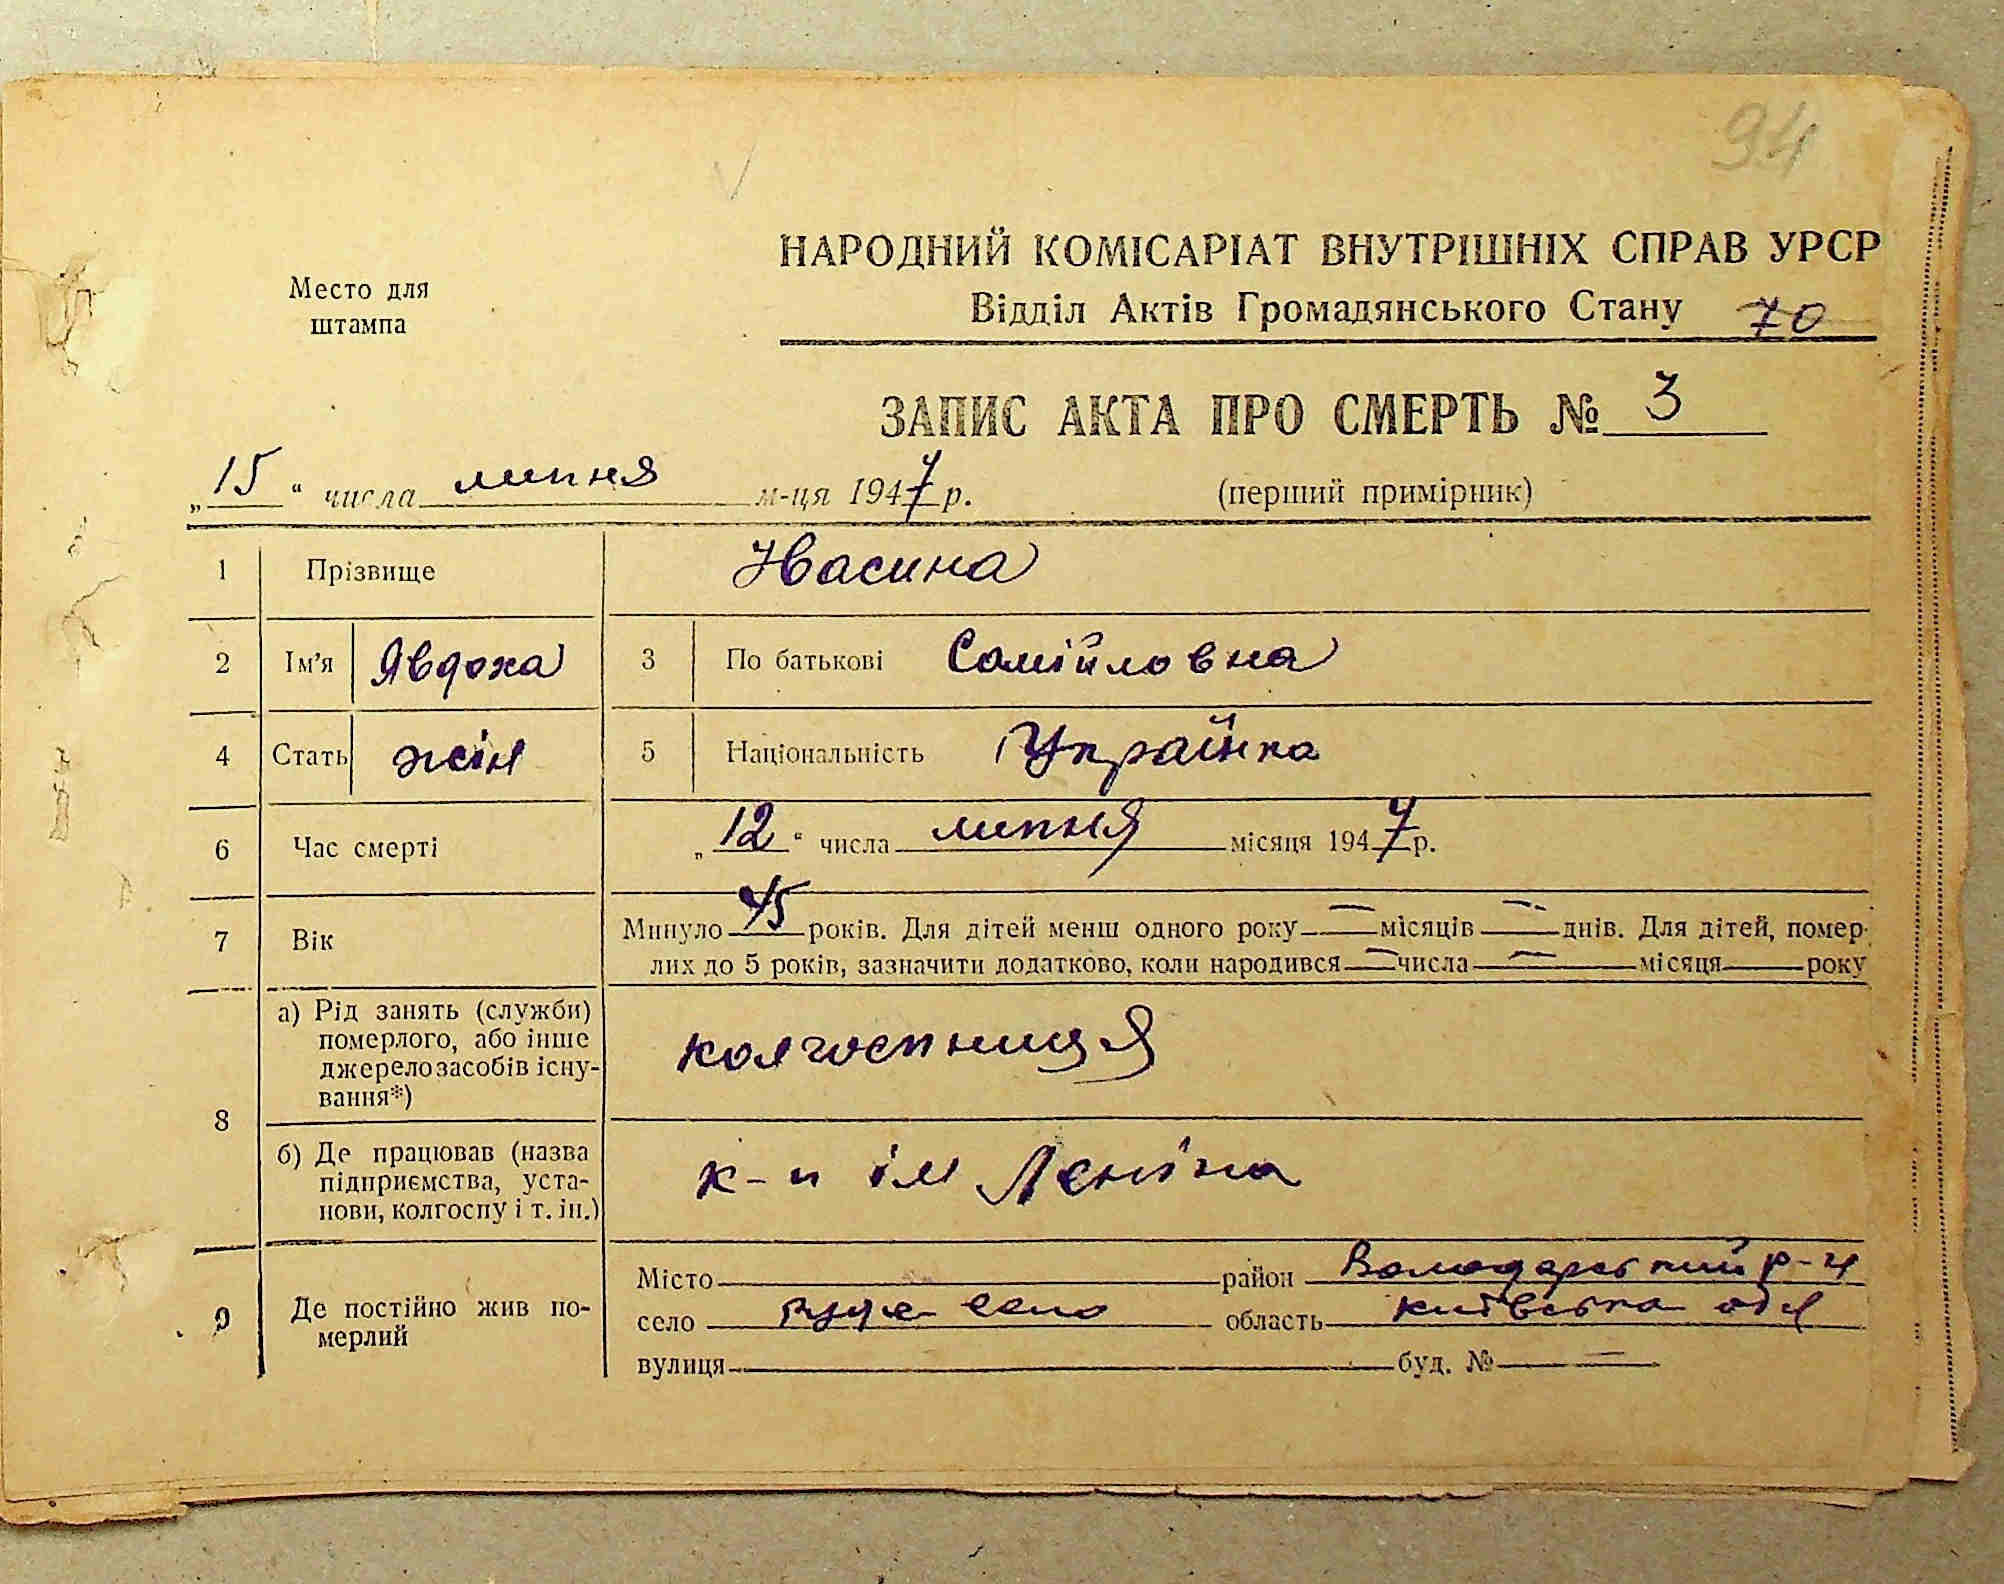 94
НАРОДНИЙ КОМІСАРІАТ ВНУТРІШНІХ СПРАВ УРСР
Место для
штампа
Відділ Актів Громадянського Стану 70
ЗАПИС АКТА ПРО СМЕРТЬ № 3
„15“ числа липня м-ця 1947 р.
(перший примірник)
1 Прізвище Квасина
2 Ім'я Явдоха 3 По батькові Самійловна
4 Стать жін 5 Національність Українка
6 Час смерті „12“ числа липня місяця 1947 р.
7 Вік Минуло 45 років. Для дітей менш одного року — місяців — днів. Для дітей, помер-
лих до 5 років, зазначити додатково, коли народився — числа — місяця року
8 а) Рід занять (служби)
померлого, або інше
джерело засобів існу-
вання*)
колгоспниця
б) Де працював (назва
підприємства, уста-
нови, колгоспу і т. ін.)
к-п ім Леніна
9 Де постійно жив по-
мерлий
Місто район Володарський р-н
село Руде село область київська обл
вулиця буд. № —